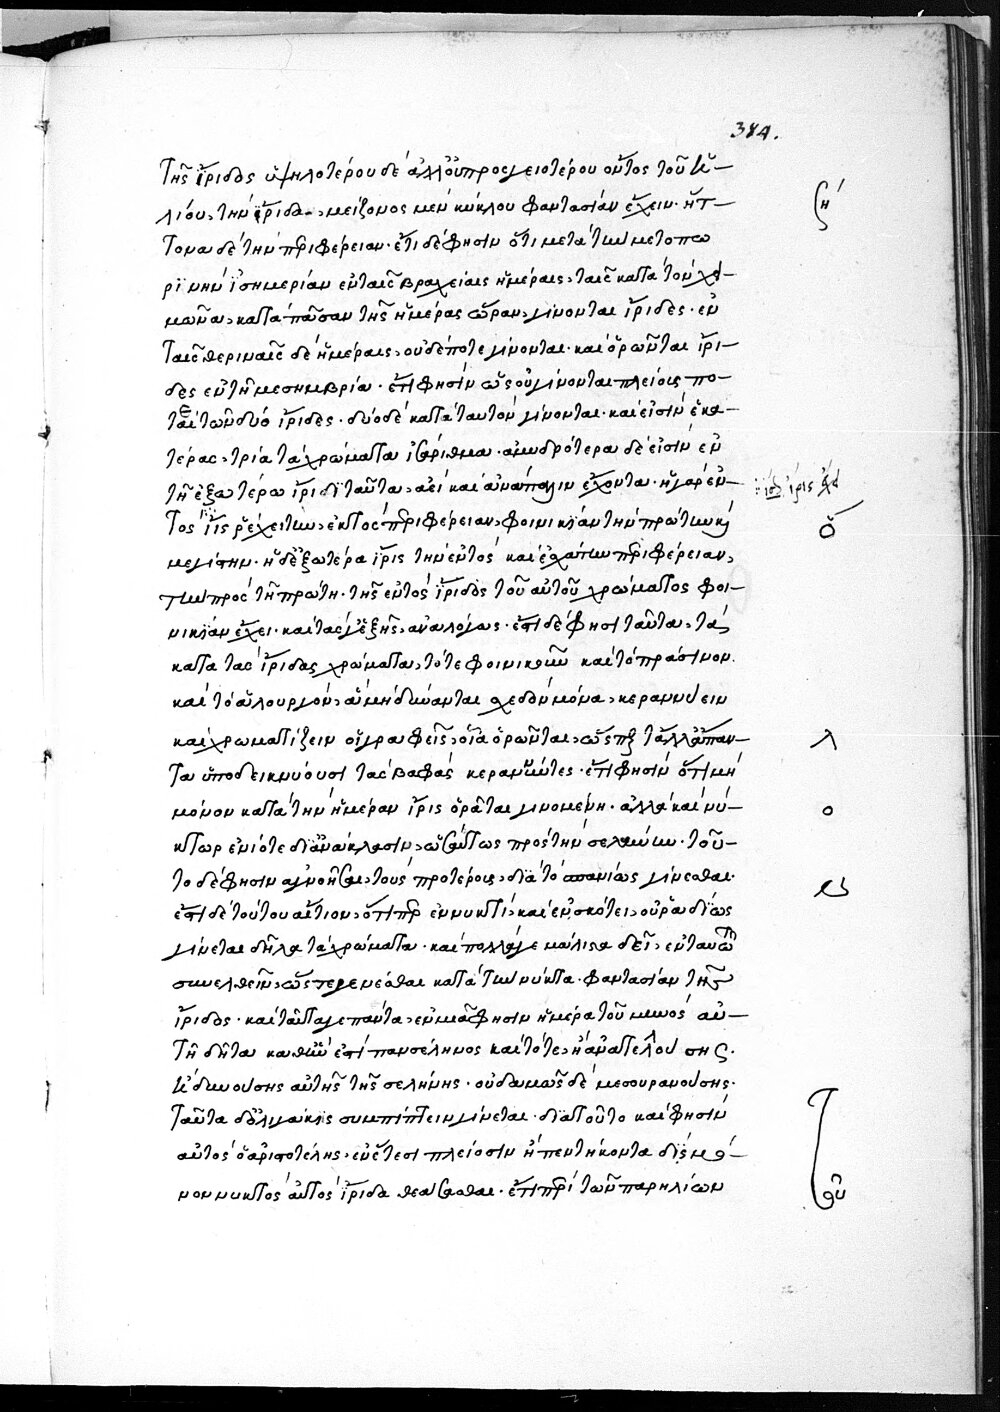 384.
τῆς ἴριδος ὑψηλοτέρου δὲ ἀλλ' οὐ προσγειοτέρου ὄντος τοῦ ἡ-
λίου, τὴν ἴριδα, μείζονος μὲν κύκλου φαντασίαν ἔχειν· ἥτ-
τονα δὲ τὴν περιφέρειαν· ἔτι δέ φησιν ὅτι μετὰ τὴν μετοπω
ρινὴν ἰσημερίαν ἐν ταῖς βραχείαις ἡμέραις, ταῖς κατὰ τὸν χει-
μῶνα, κατὰ πᾶσαν τῆς ἡμέρας ὥραν, γίνονται ἴριδες· ἐν
ταῖς θεριναῖς δὲ ἡμέραις, οὐδέποτε γίνονται· καὶ ὁρῶνται ἴρι-
δες ἐν τῇ μεσημβρίᾳ· ἔτι φησὶν ὡς οὐ γίνονται πλείους πο-
τὲ τῶν δυό ἴριδες· δύο δὲ κατὰ ταυτὸν γίνονται· καὶ εἰσὶν ἑκα-
τέρας, τρία τὰ χρώματα ἰσάριθμα· ἀμυδρότερα δέ εἰσιν ἐν
τῇ ἐξωτέρω ἴριδι ταῦτα, ἀεὶ καὶ ἀνάπαλιν ἔχοντα· ἡ γὰρ ἐν-
τὸς ἴρις ἔχει τὴν ἐκτὸς περιφέρειαν, φοινικίαν τὴν πρώτην κ(αὶ)
μεγίστην· ἡ δ' ἐξωτέρα ἴρις τὴν ἐντὸς καὶ ἐλάττω περιφέρειαν,
τὴν πρὸς τῇ πρώτῃ· τῆς ἐντὸς ἴριδος τοῦ αὐτοῦ χρώματος φοι-
νικίαν ἔχει· καὶ τὰς γ' ἑξῆς, ἀναλόγως· ἔτι δέ φησι ταῦτα, τὰ
κατὰ τὰς ἴριδας χρώματα, τότε φοινικοῦν καὶ τὸ πράσινον
καὶ τὸ ἁλουργόν, ἃ μὴ δύνανται σχεδὸν μόνα, κεραννύειν
καὶ χρωματίζειν οἱ γραφεῖς, οἷα ὁρῶνται, ὥσπερ τἆλλα πάν-
τα ὑποδεικνύουσι τὰς βαφὰς κεραννύντες· ἔτι φησὶν ὅτι μὴ
μόνον κατὰ τὴν ἡμέραν ἴρις ὁρᾶται γινομένη· ἀλλὰ καὶ νύ-
κτωρ ἐνίοτε δι' ἀνάκλασιν, ὡσαύτως πρὸς τὴν σελήνην· τοῦ-
το δέ φησιν ἀγνοῆσαι, τοὺς προτέρους, διὰ τὸ σπανίως γίνεσθαι·
ἔστι δὲ τούτου αἴτιον, ὅτιπερ ἐν νυκτὶ, καὶ ἐν σκότει, οὐ ῥᾳδίως
γίνεται δῆλα τὰ χρώματα· καὶ πολλά γε μάλιστα δεῖ, ἐν ταυτῷ
συνελθεῖν, ὥστε γενέσθαι κατὰ τὴν νύκτα φαντασίαν τῆς
ἴριδος· καὶ ταῦτά γε πάντα, ἐν μιᾷ φησιν ἡμέρᾳ τοῦ μηνὸς αὐ-
τῇ δῆτα καθ' ἣν ἐστὶ πανσέληνος καὶ τότε, ἢ ἀνατελλούσης
ἢ δυνούσης αὐτῆς τῆς σελήνης· οὐδαμῶς δὲ μεσουρανούσης·
ταῦτα δ' ὀλιγάκις συμπίπτειν γίνεται· διὰ τοῦτο καί φησιν
αὐτὸς ὁ ἀριστοτέλης, ἐν ἔτεσι πλείοσιν ἢ πεντήκοντα δὶς μό-
νον νυκτὸς αὐτὸς ἴριδα θεάσασθαι· ἔτι περὶ τῶν παρηλίων